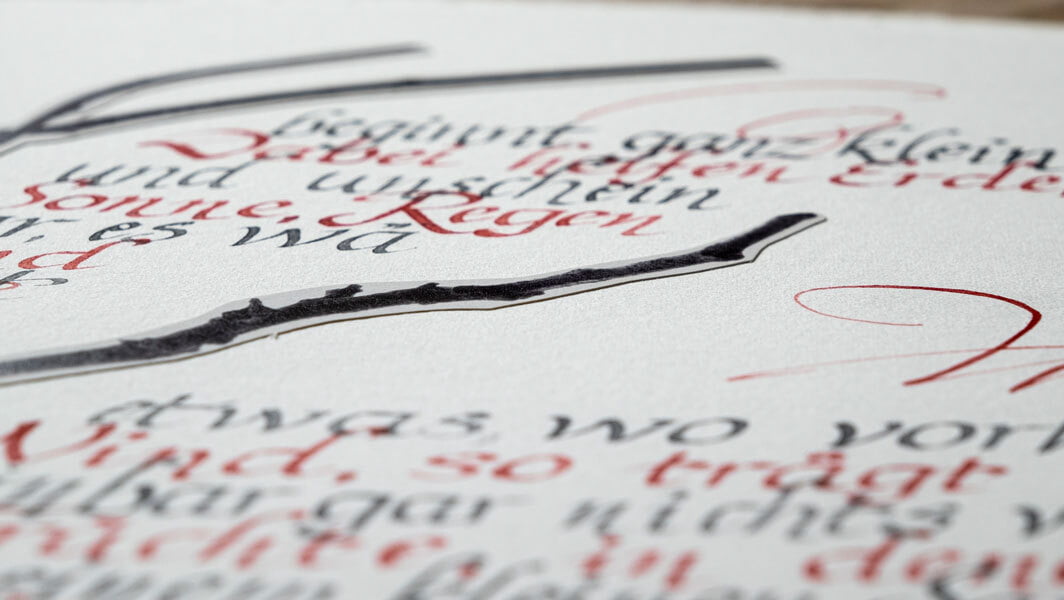 beginnt ganz klein
Dabei helfen Erde
und unschein
Sonne, Regen
es wä
etwas, wo vor
Wind, so trägt
gar nichts
in den